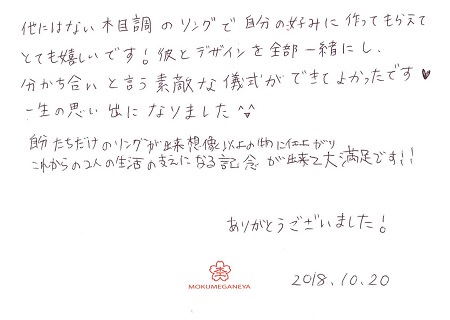 他にはない木目調のリングで自分の好みに作ってもらえて
とても嬉しいです!彼とデザインを全部一緒にし、
分かち合いと言う素敵な儀式ができてよかったです♥
一生の思い出になりました^^
自分たちだけのリングが出来想像以上の物に仕上がり
これからの2人の生活の支えになる記念が出来て大満足です!!
ありがとうございました!
MOKUMEGANEYA
2018.10.20